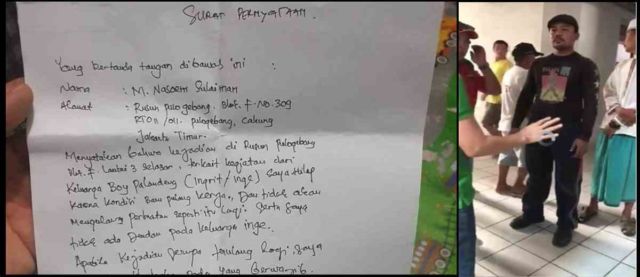 SURAT PERNYATAAN.
Yang bertanda tangan dibawah ini :
Nama : M. Nasoem Sulaiman
Alamat : Rusun pulogebang. blok. F. No. 309
RT 011 / 011. pulogebang, cakung
Jakarta Timur.
Menyatakan bahwa kejadian di Rusun pulogebang
blok. F. Lantai 3 selasar, terkait kegiatan dari
Keluarga Boy (Ingrit/Inge) saya
Karna kondisi Baru pulang kerja,, Dan tidak akan
Mengulangi perbuatan seperti itu lagi. serta saya
tidak ada Dendam pada keluarga inge.
Apabila Kejadian serupa terulang lagi saya
yang Berwajib.